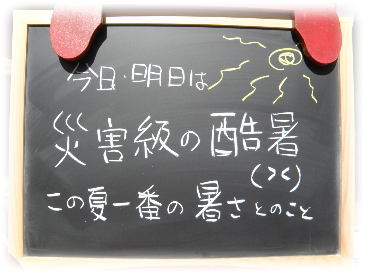 今日・明日は
災害級の酷暑
(><)
この夏一番の暑さとのこと